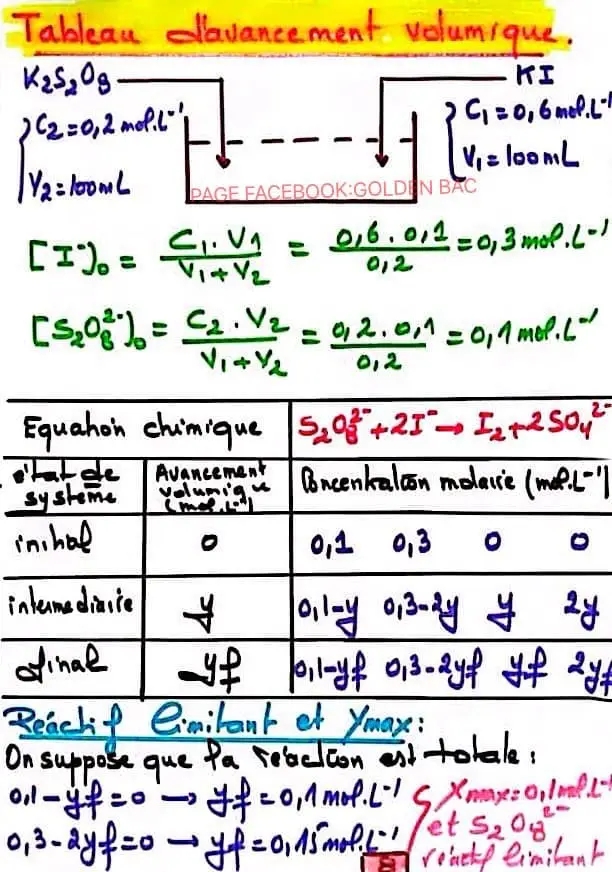 Tableau d'avancement volumique.
K2S2O8 KI
C2=0,2 mol.L⁻¹ C1=0,6 mol.L⁻¹
V2=100mL V1=100mL
PAGE FACEBOOK:GOLDEN BAC
[I⁻]₀ = C1.V1 / V1+V2 = 0,6.0,1 / 0,2 = 0,3 mol.L⁻¹
[S2O8²⁻]₀ = C2.V2 / V1+V2 = 0,2.0,1 / 0,2 = 0,1 mol.L⁻¹
Equation chimique S2O8²⁻+2I⁻→ I2+2SO4²⁻
état de système Avancement volumique (mol.L⁻¹) Concentration molaire (mol.L⁻¹)
initial 0 0,1 0,3 0 0
intermediaire y 0,1-y 0,3-2y y 2y
final yf 0,1-yf 0,3-2yf yf 2yf
Réactif limitant et Ymax:
On suppose que la réaction est totale:
0,1-yf=0 → yf=0,1 mol.L⁻¹
0,3-2yf=0 → yf=0,15 mol.L⁻¹
Xmax=0,1mol.L⁻¹
et S2O8²⁻
réactif limitant
8